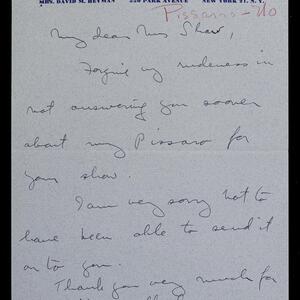 MRS. DAVID M. HEYMAN 720 PARK AVENUE NEW YORK 21, N. Y.
Pissarro - No
My dear Mrs Shaw,
Forgive my rudeness in
not answering you sooner
about my Pissaro for
your show.
I am very sorry not to
have been able to send it
on to you.
Thank you very much for